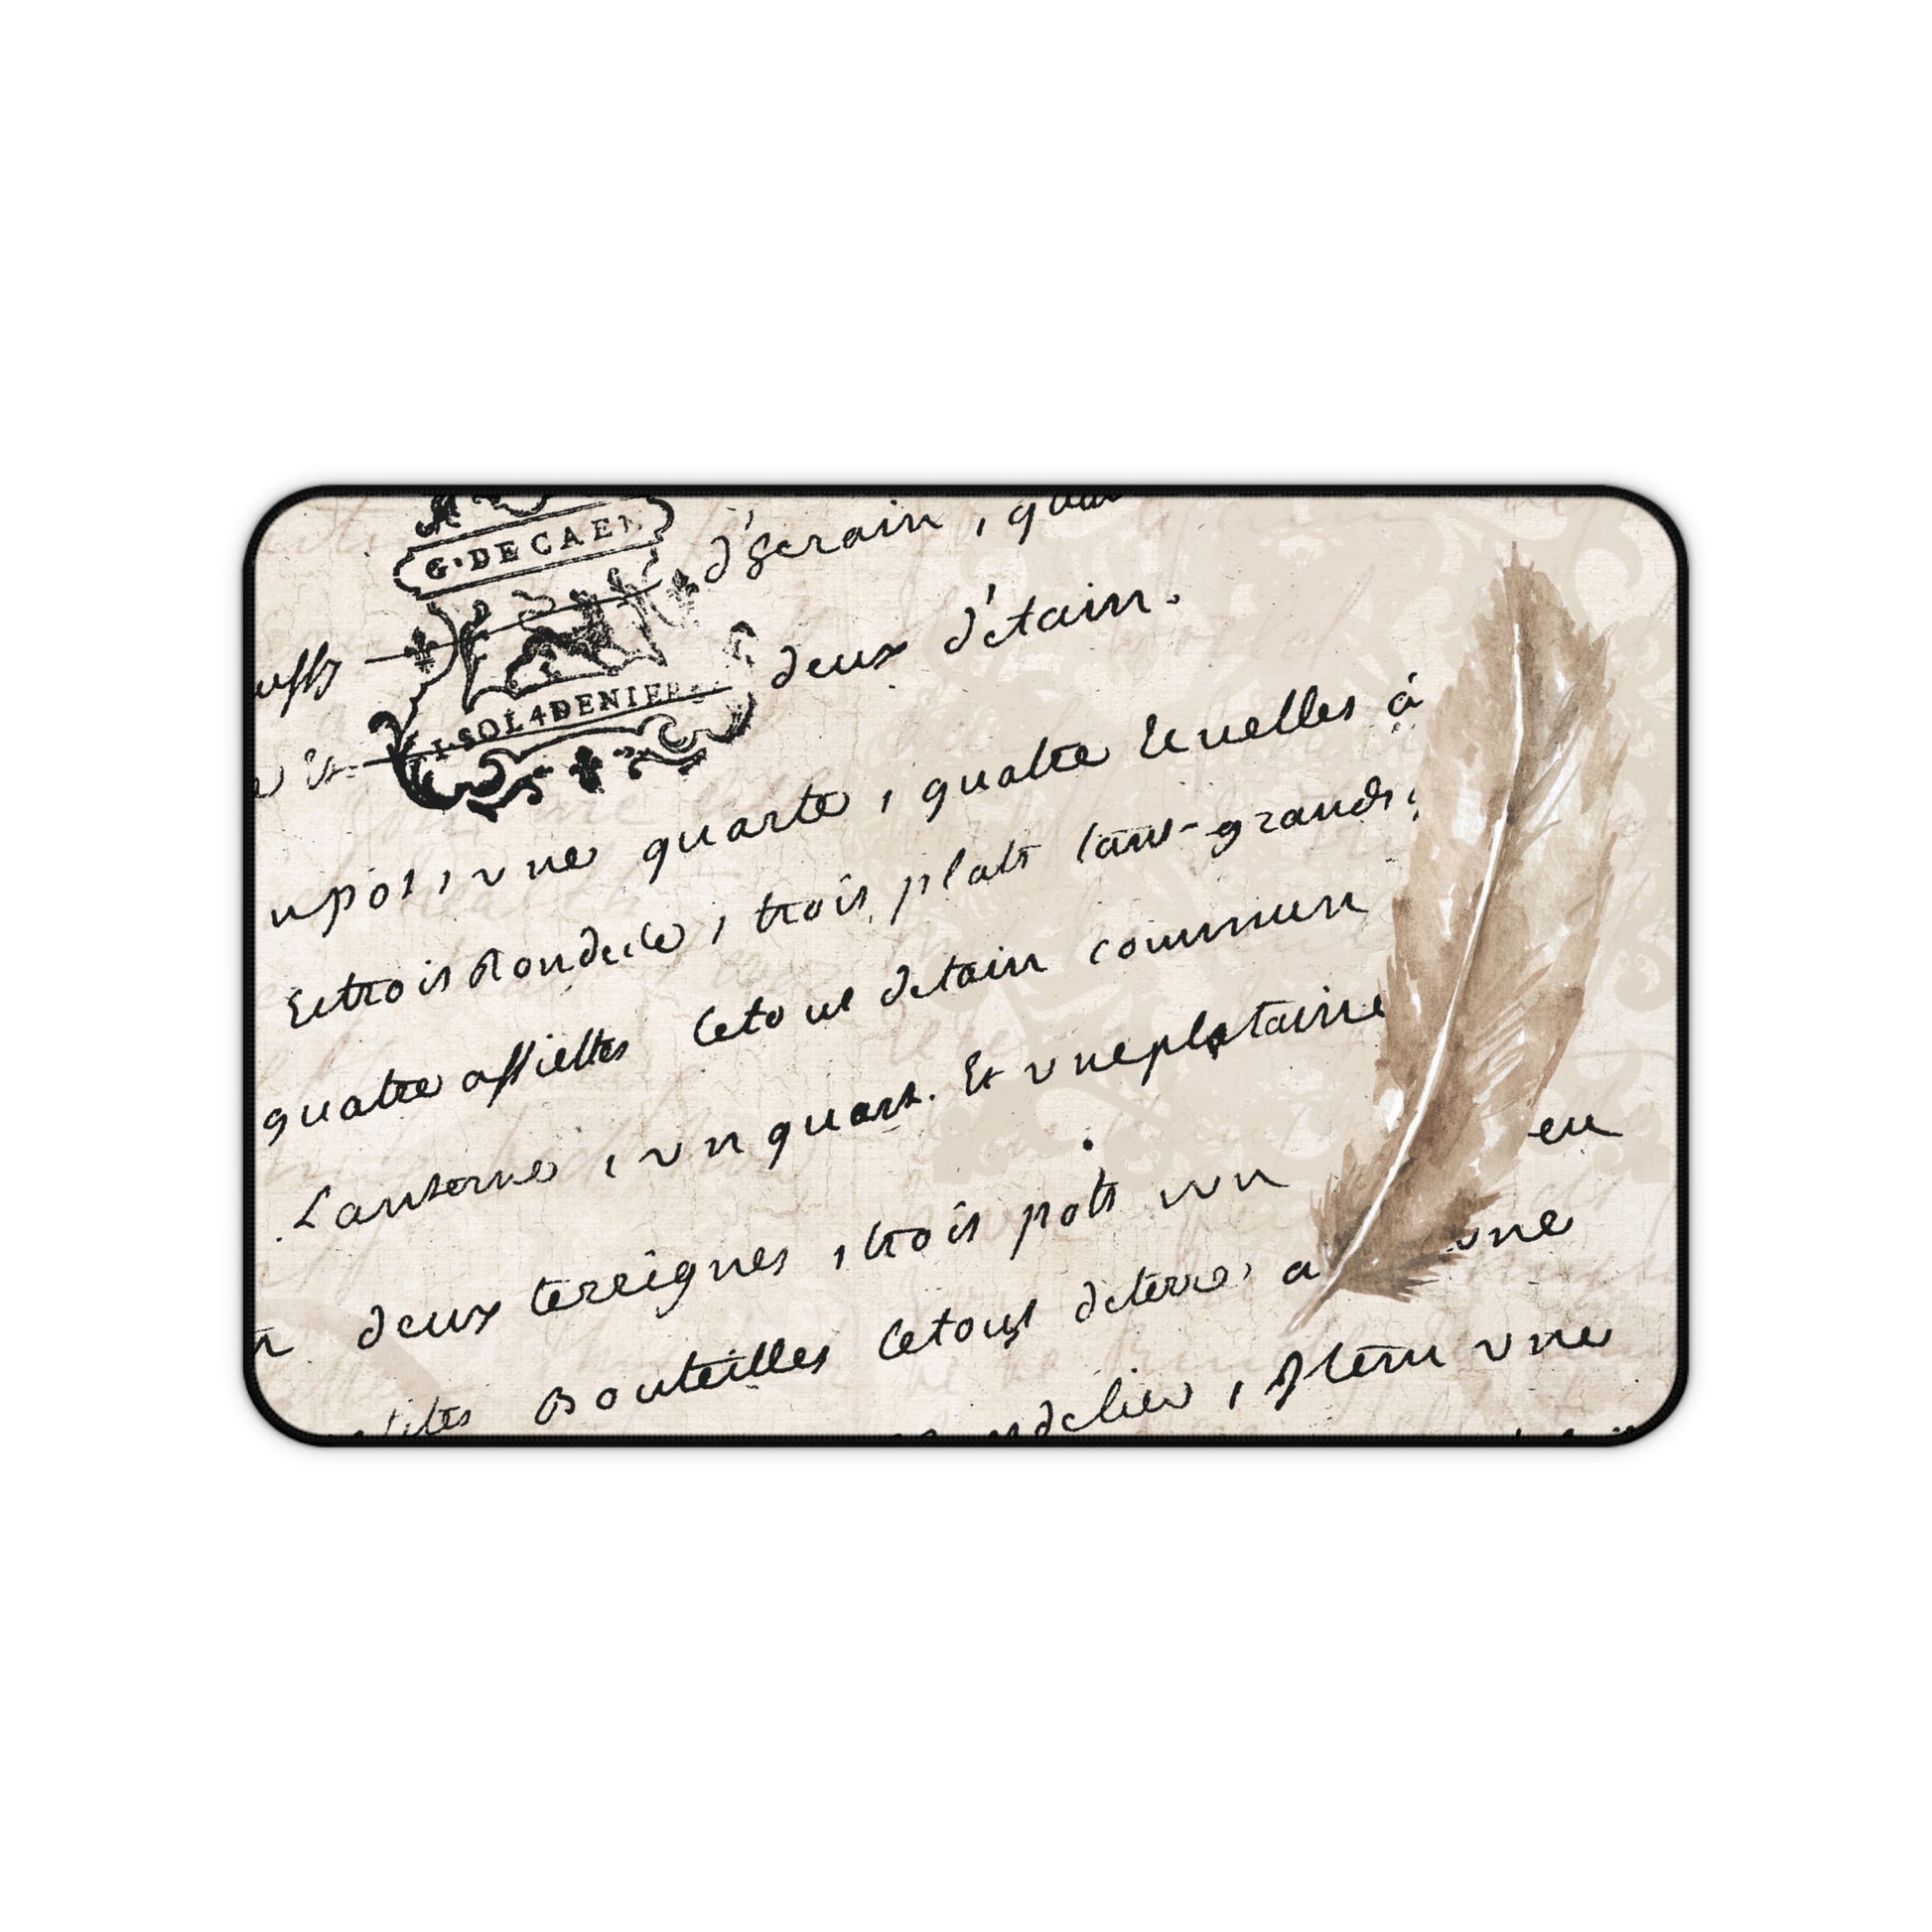 G·DE CAEN
d'étain, qua
1·SOL 4 DENIERS
deux d'étain.
un pot, vne quarte, quattre Ecuelles á
Et trois Rondelle, trois plats tant grands
quatre assiettes Le tout detain commun
Lanterne, vn quart. Et vne plataine
en
deux terrignes, trois pots vn
vne
tites Bouteilles Le tout de terre, a
ndelier, Item vne